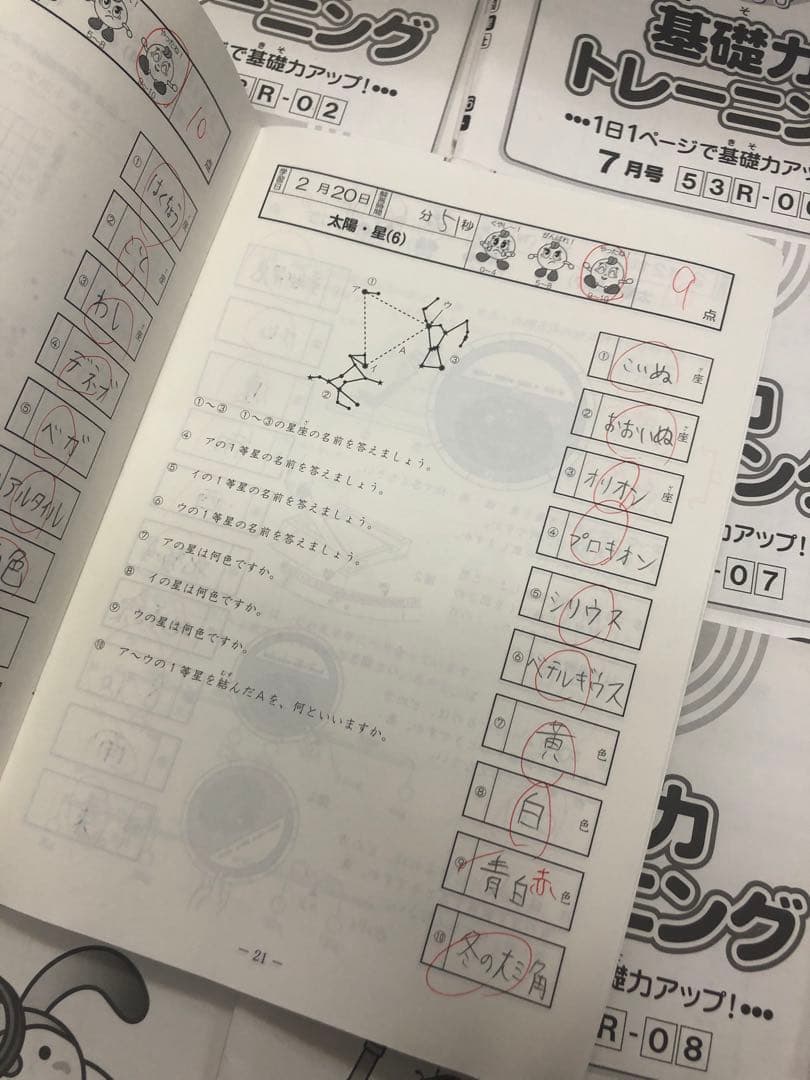 ニング
で基礎力アップ!•••
R-02
基礎力
トレーニン
•••1日1ページで基礎力ア
7月号 53R-0
やったね!
5〜8
9〜10
10
点
① はくちょう 座
② こと 座
③ わし 座
④ デネブ
⑤ ベガ
アルタイル
色
学習日 2月20日 学習時間 分51秒
太陽・星(6)
くやし〜!
0〜4
がんばれ!
5〜8
やったね!
9〜10
9点
ア
①
ウ
A
イ
③
②
①〜③ ①〜③の星座の名前を答えましょう。
④ アの1等星の名前を答えましょう。
⑤ イの1等星の名前を答えましょう。
⑥ ウの1等星の名前を答えましょう。
⑦ アの星は何色ですか。
⑧ イの星は何色ですか。
⑨ ウの星は何色ですか。
⑩ ア〜ウの1等星を結んだAを、何といいますか。
① こいぬ 座
② おおいぬ 座
③ オリオン 座
④ プロキオン
⑤ シリウス
⑥ ベテルギウス
⑦ 黄 色
⑧ 白 色
⑨ 青白 赤 色
⑩ 冬の大三角
— 21 —
力
ング
力アップ!
-07
力
ニング
基礎力アップ!•••
R-08